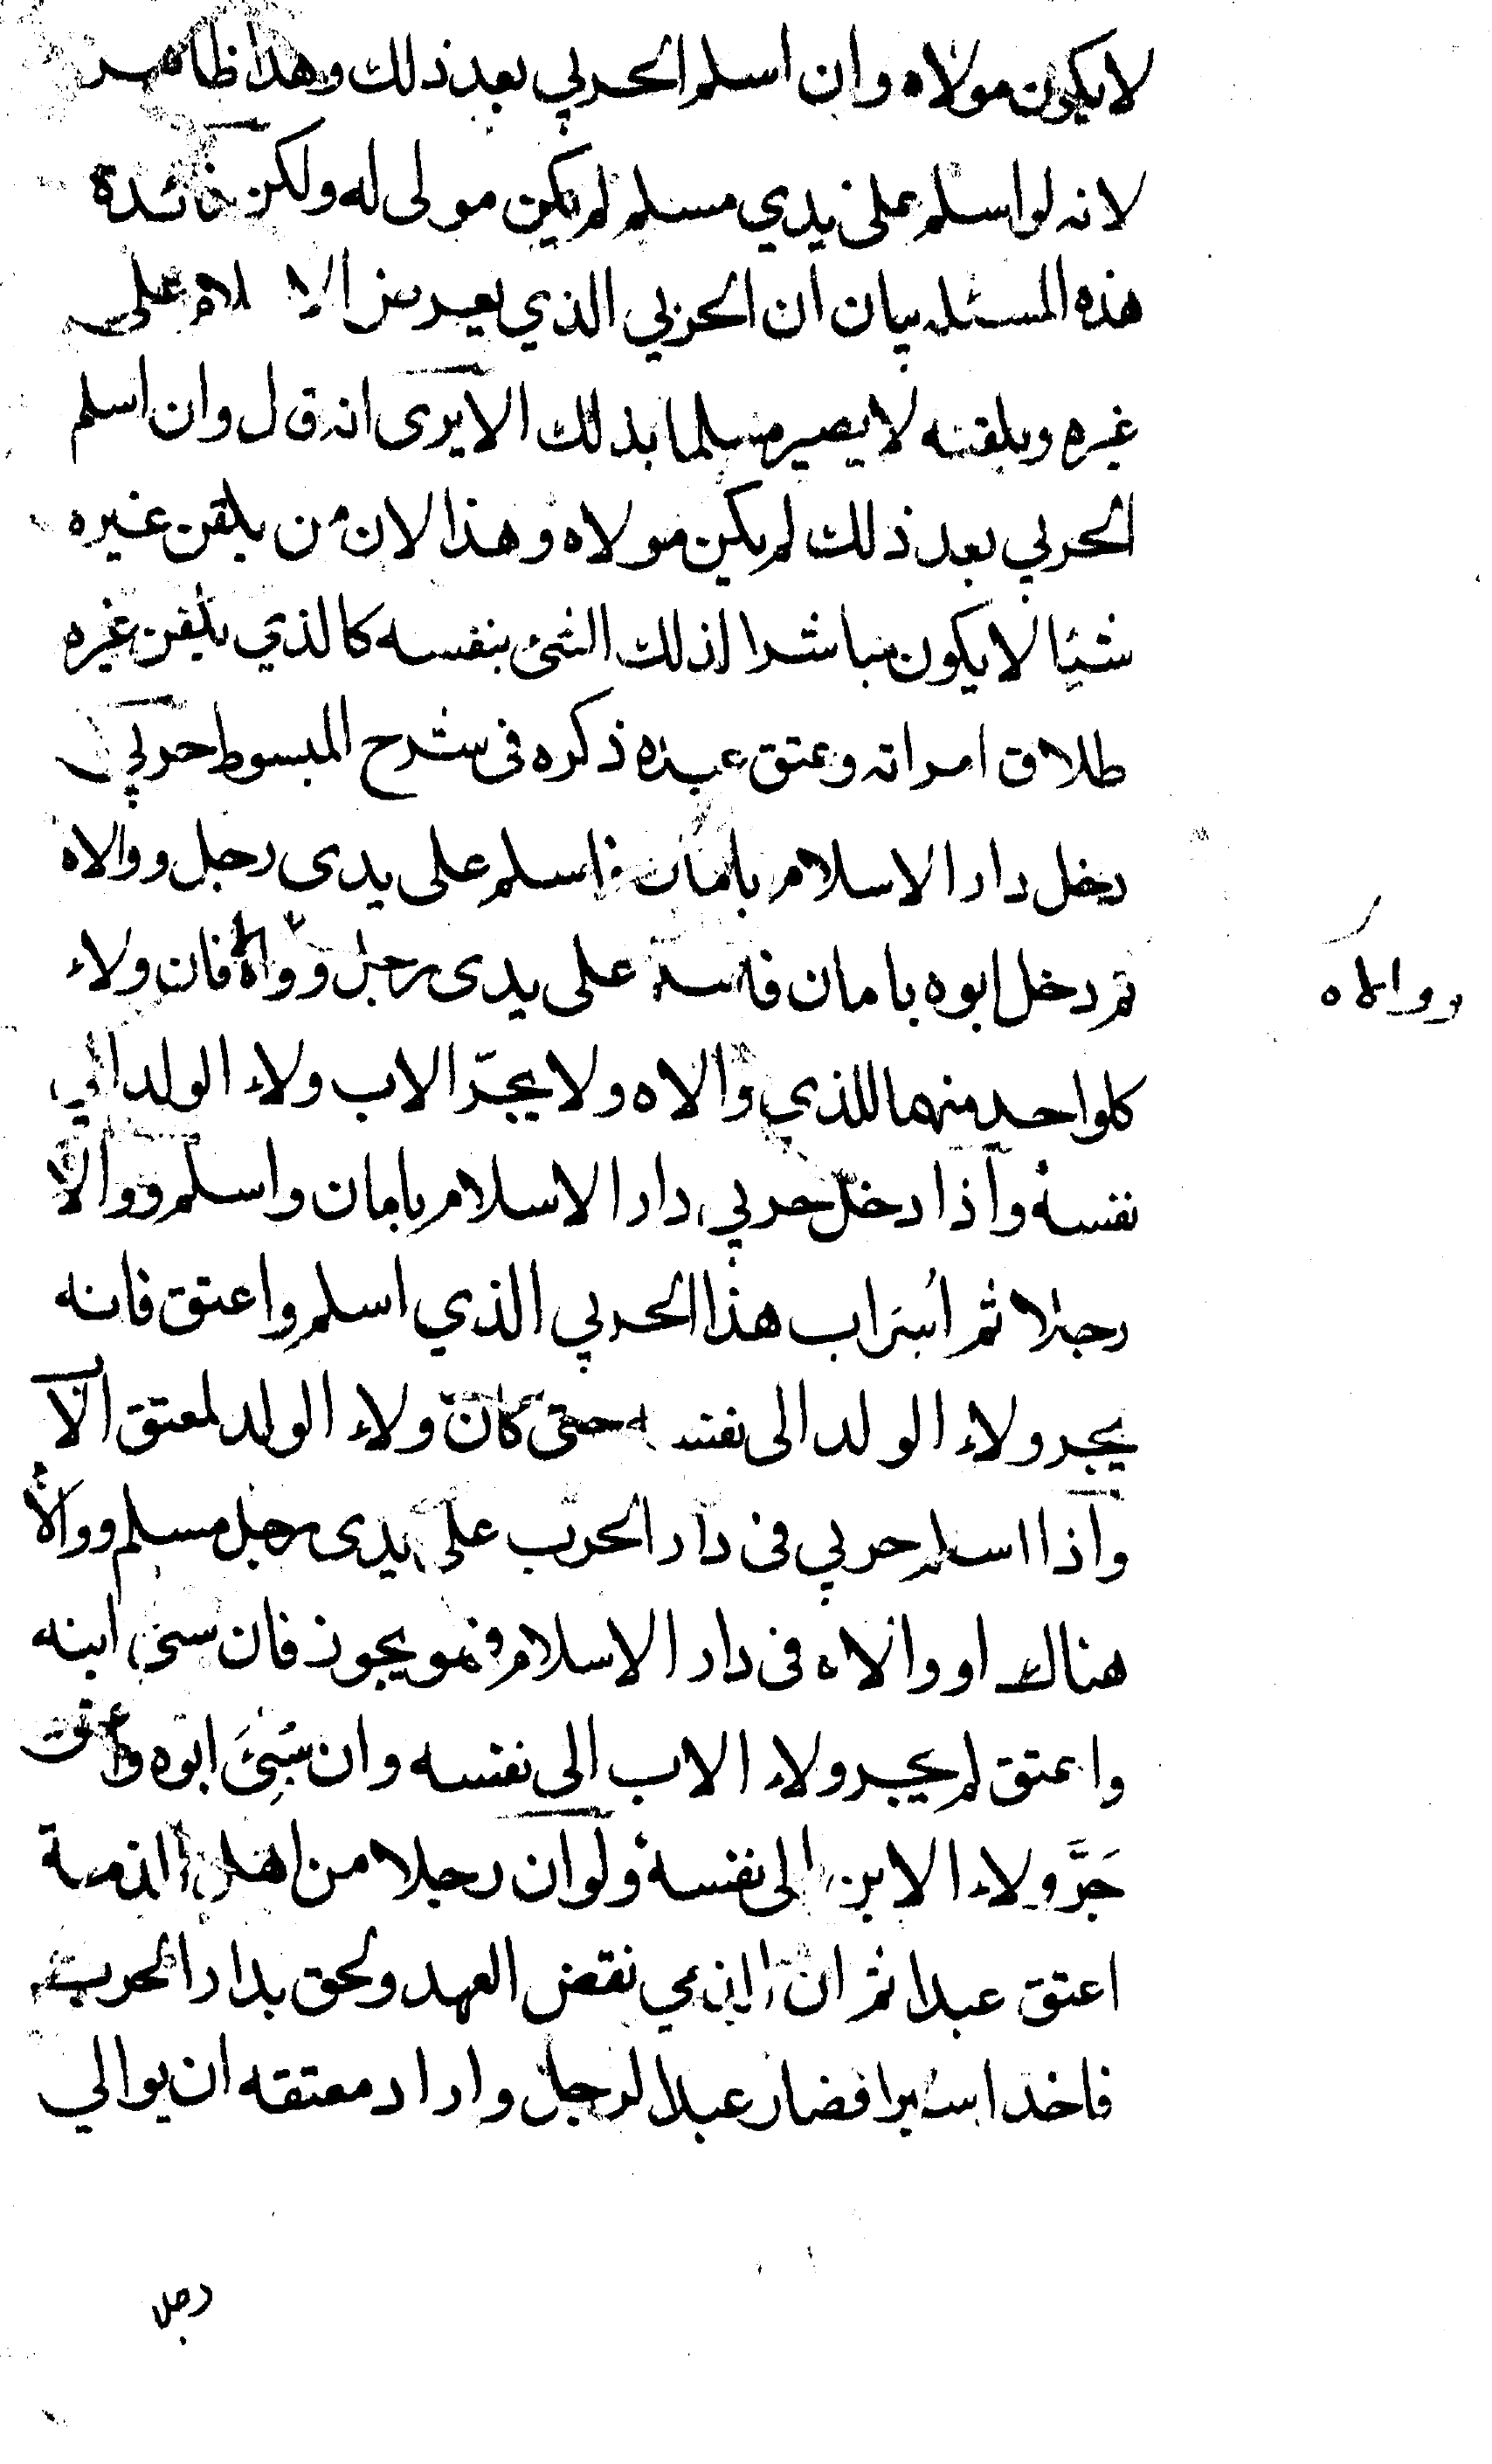 لا يكون مولاه وان اسلم الحربي بعد ذلك وهذا ظاهر
لانه لو اسلم على يدي مسلم لم يكن مولى له ولكن فائدة
هذه المسئله بيان ان الحربي الذي يعرض الا لام على
غيره ويلقنه لا يصير مسلما بذلك الا يرى انه قال وان اسلم
الحربي بعد ذلك لم يكن مولاه وهذا لان من يلقن غيره
شيئا لا يكون مباشرا لذلك الشئ بنفسه كالذي يلقن غيره
طلاق امراته وعتق عبده ذكره فى شرح المبسوط حربي
دخل دار الاسلام بامان فاسلم على يدى رجل ووالاه
ثم دخل ابوه بامان فاسلم على يدى رجل ووالاه فان ولاء
ووالاه
كلواحد منهما للذي والاه ولا يجرّ الاب ولاء الولد الي
نفسه واذا دخل حربي دار الاسلام بامان واسلم ووالا
رجلا ثم اُسر اب هذا الحربي الذي اسلم واعتق فانه
يجر ولاء الولد الى نفسه حتى كان ولاء الولد لمعتق الاب
واذا اسلم حربي فى دار الحرب على يدى رجل مسلم ووالاه
هناك او والاه فى دار الاسلام فهو يجوز فان سبى ابنه
واعتق لم يجر ولاء الاب الى نفسه وان سُبِىَ ابوه واعتق
جَرَّ ولاء الابن الى نفسه ولو ان رجلا من اهل الذمة
اعتق عبدا ثم ان الذمي نقض العهد ولحق بدار الحرب
فاخذ اسيرا فصار عبدا لرجل واراد معتقه ان يوالي
رجل